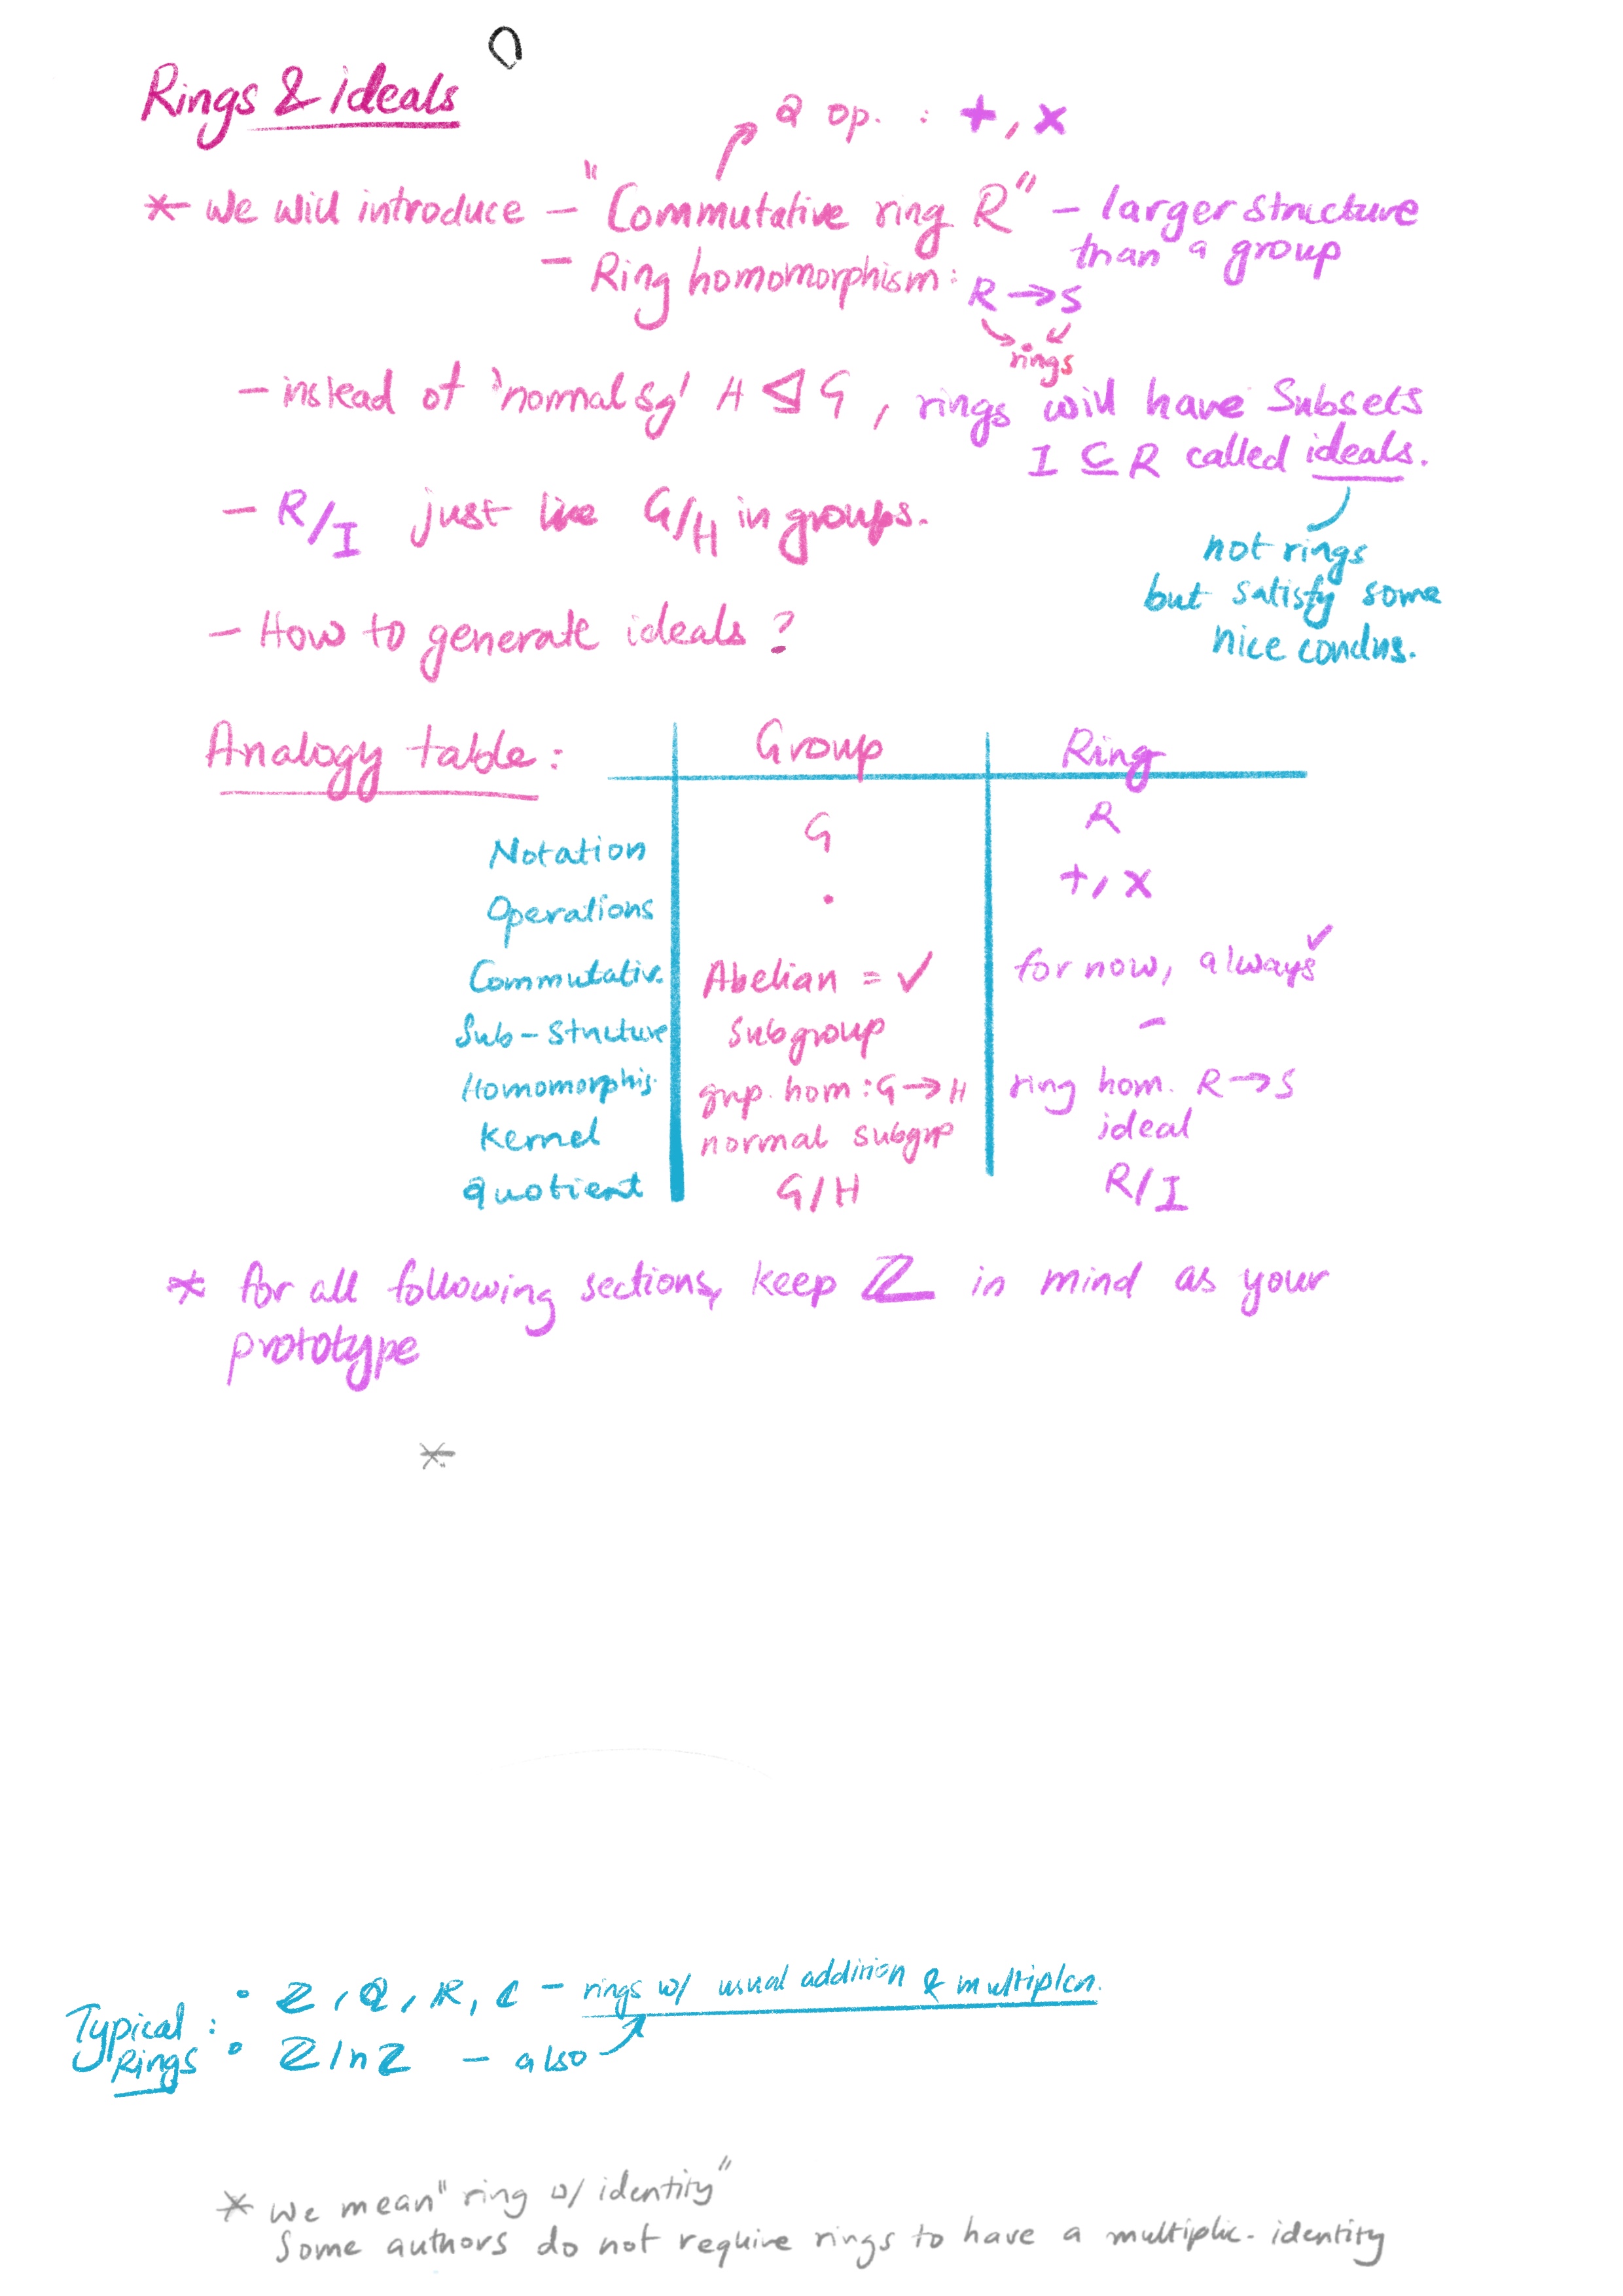 Rings & ideals
2 op. : +, x
* We will introduce - "Commutative ring R" - larger structure
than a group
- Ring homomorphism: R → S
rings
- instead of 'normal sg' H ⊴ G, rings will have subsets
I ⊆ R called ideals.
- R/I just like G/H in groups.
not rings
but satisfy some
nice condns.
- How to generate ideals ?
Analogy table: Group Ring
Notation G R
Operations · +, x
Commutativ. Abelian = ✓ for now, always ✓
Sub-structure subgroup -
Homomorphis. grp. hom: G → H ring hom. R → S
Kernel normal subgrp ideal
quotient G/H R/I
* for all following sections, keep ℤ in mind as your
prototype
*
Typical Rings :
• ℤ, ℚ, ℝ, ℂ - rings w/ usual addition & multiplcn.
• ℤ/nℤ - also
* We mean "ring w/ identity"
Some authors do not require rings to have a multiplic. identity